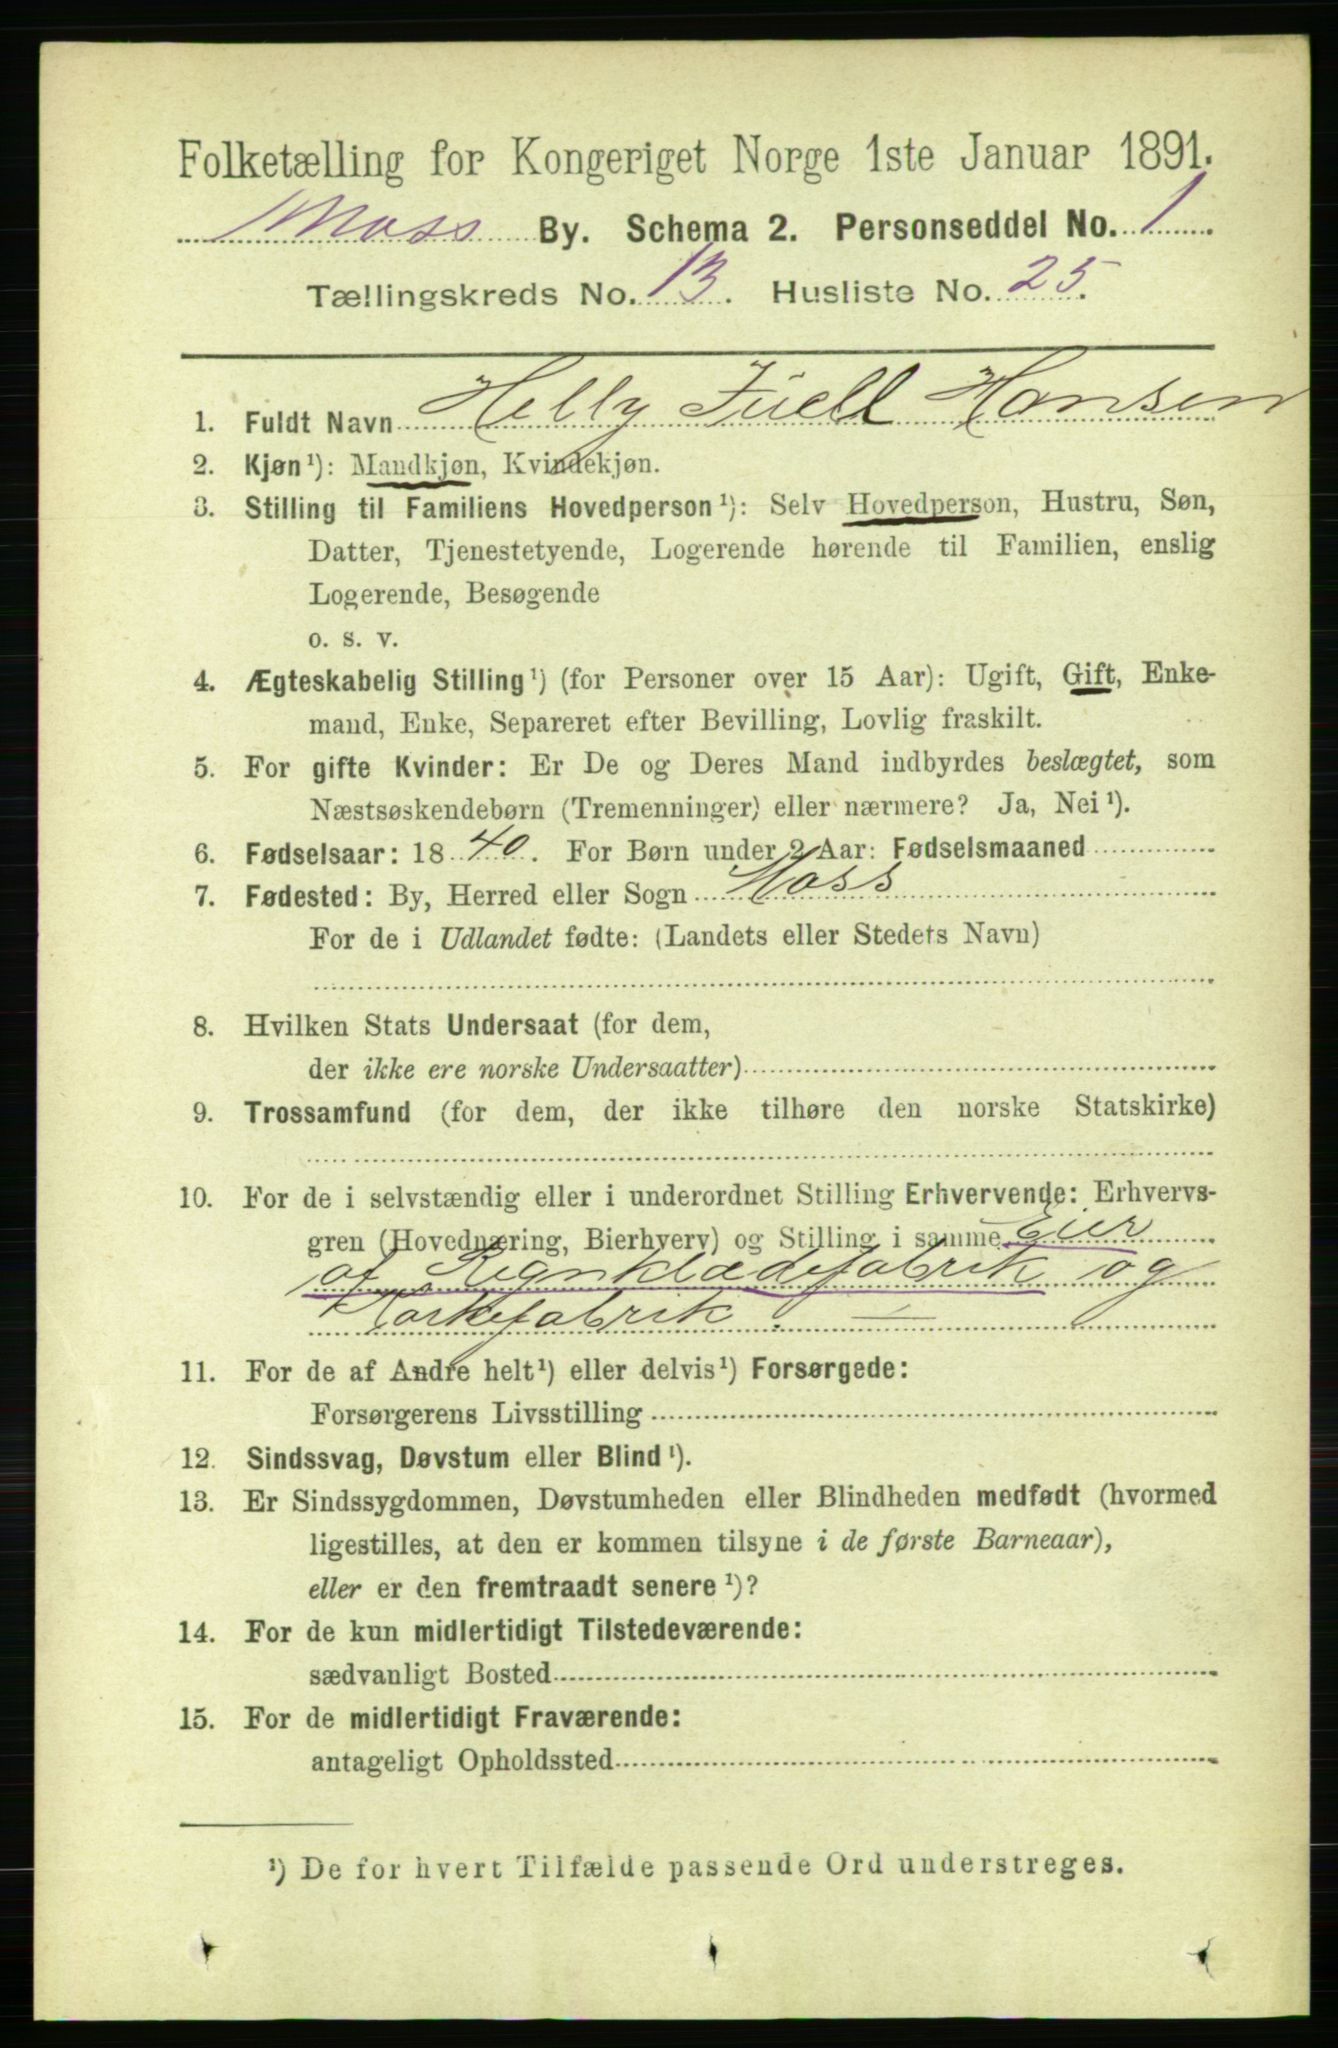 Folketælling for Kongeriget Norge 1ste Januar 1891.
Moss By. Schema 2. Personseddel No. 1
Tællingskreds No. 13. Husliste No. 25.
1. Fuldt Navn Helly Juell Hansen
2. Kjøn¹): Mandkjøn, Kvindekjøn.
3. Stilling til Familiens Hovedperson¹): Selv Hovedperson, Hustru, Søn,
Datter, Tjenestetyende, Logerende hørende til Familien, enslig
Logerende, Besøgende
o. s. v.
4. Ægteskabelig Stilling¹) (for Personer over 15 Aar): Ugift, Gift, Enke-
mand, Enke, Separeret efter Bevilling, Lovlig fraskilt.
5. For gifte Kvinder: Er De og Deres Mand indbyrdes beslægtet, som
Næstsøskendebørn (Tremenninger) eller nærmere? Ja, Nei¹).
6. Fødselsaar: 1840. For Børn under 2 Aar: Fødselsmaaned
7. Fødested: By, Herred eller Sogn Moss
For de i Udlandet fødte: (Landets eller Stedets Navn)
8. Hvilken Stats Undersaat (for dem,
der ikke ere norske Undersaatter)
9. Trossamfund (for dem, der ikke tilhøre den norske Statskirke)
10. For de i selvstændig eller i underordnet Stilling Erhvervende: Erhvervs-
gren (Hovednæring, Bierhverv) og Stilling i samme Eier
af Regnklædefabrik og
Korkefabrik. —
11. For de af Andre helt¹) eller delvis¹) Forsørgede:
Forsørgerens Livsstilling
12. Sindssvag, Døvstum eller Blind¹).
13. Er Sindssygdommen, Døvstumheden eller Blindheden medfødt (hvormed
ligestilles, at den er kommen tilsyne i de første Barneaar),
eller er den fremtraadt senere¹)?
14. For de kun midlertidigt Tilstedeværende:
sædvanligt Bosted
15. For de midlertidigt Fraværende:
antageligt Opholdssted
¹) De for hvert Tilfælde passende Ord understreges.